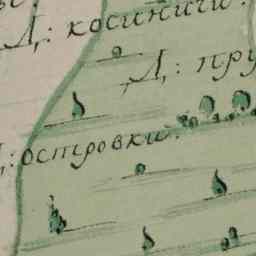 Д,: косиничи.
Д,: пру
,: островки.